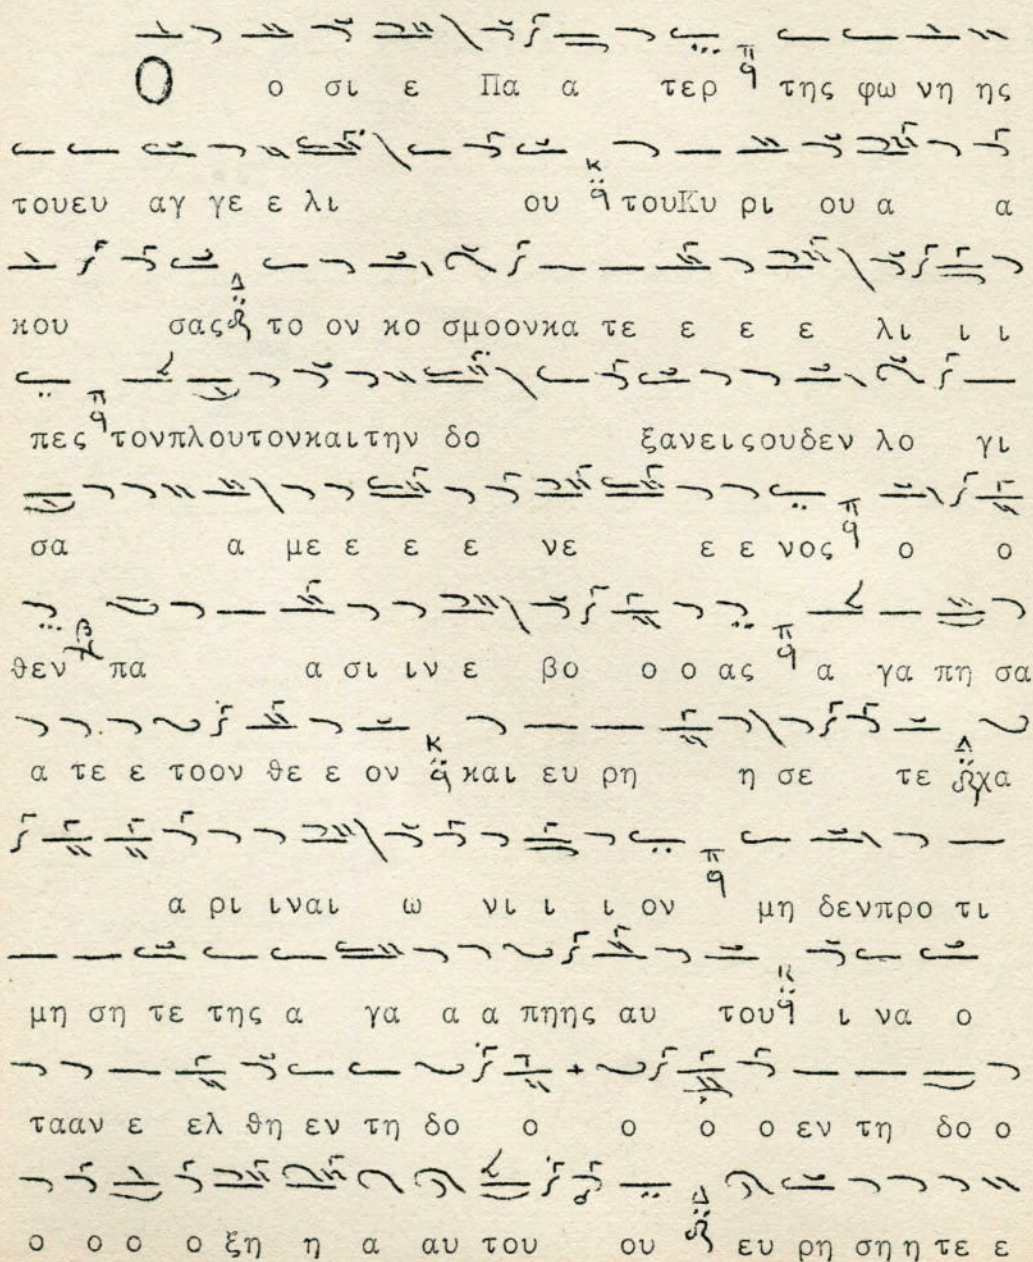 Ο ο σι ε Πα α τερ της φω νη ης
τουευ αγ γε ε λι ου τουΚυ ρι ου α α
κου σας το ον κο σμοονκα τε ε ε ε λι ι ι
πες τονπλουτονκαιτην δο ξανειςουδεν λο γι
σα α με ε ε ε νε ε ε νος ο ο
θεν πα α σι ιν ε βο ο ο ας α γα πη σα
α τε ε τοον θε ε ον και ευ ρη η σε τε χα
α ρι ιναι ω νι ι ι ον μη δενπρο τι
μη ση τε της α γα α α πηης αυ του ι να ο
τααν ε ελ θη εν τη δο ο ο ο ο εν τη δο ο
ο ο ο ο ξη η α αυ του ου ευ ρη ση η τε ε